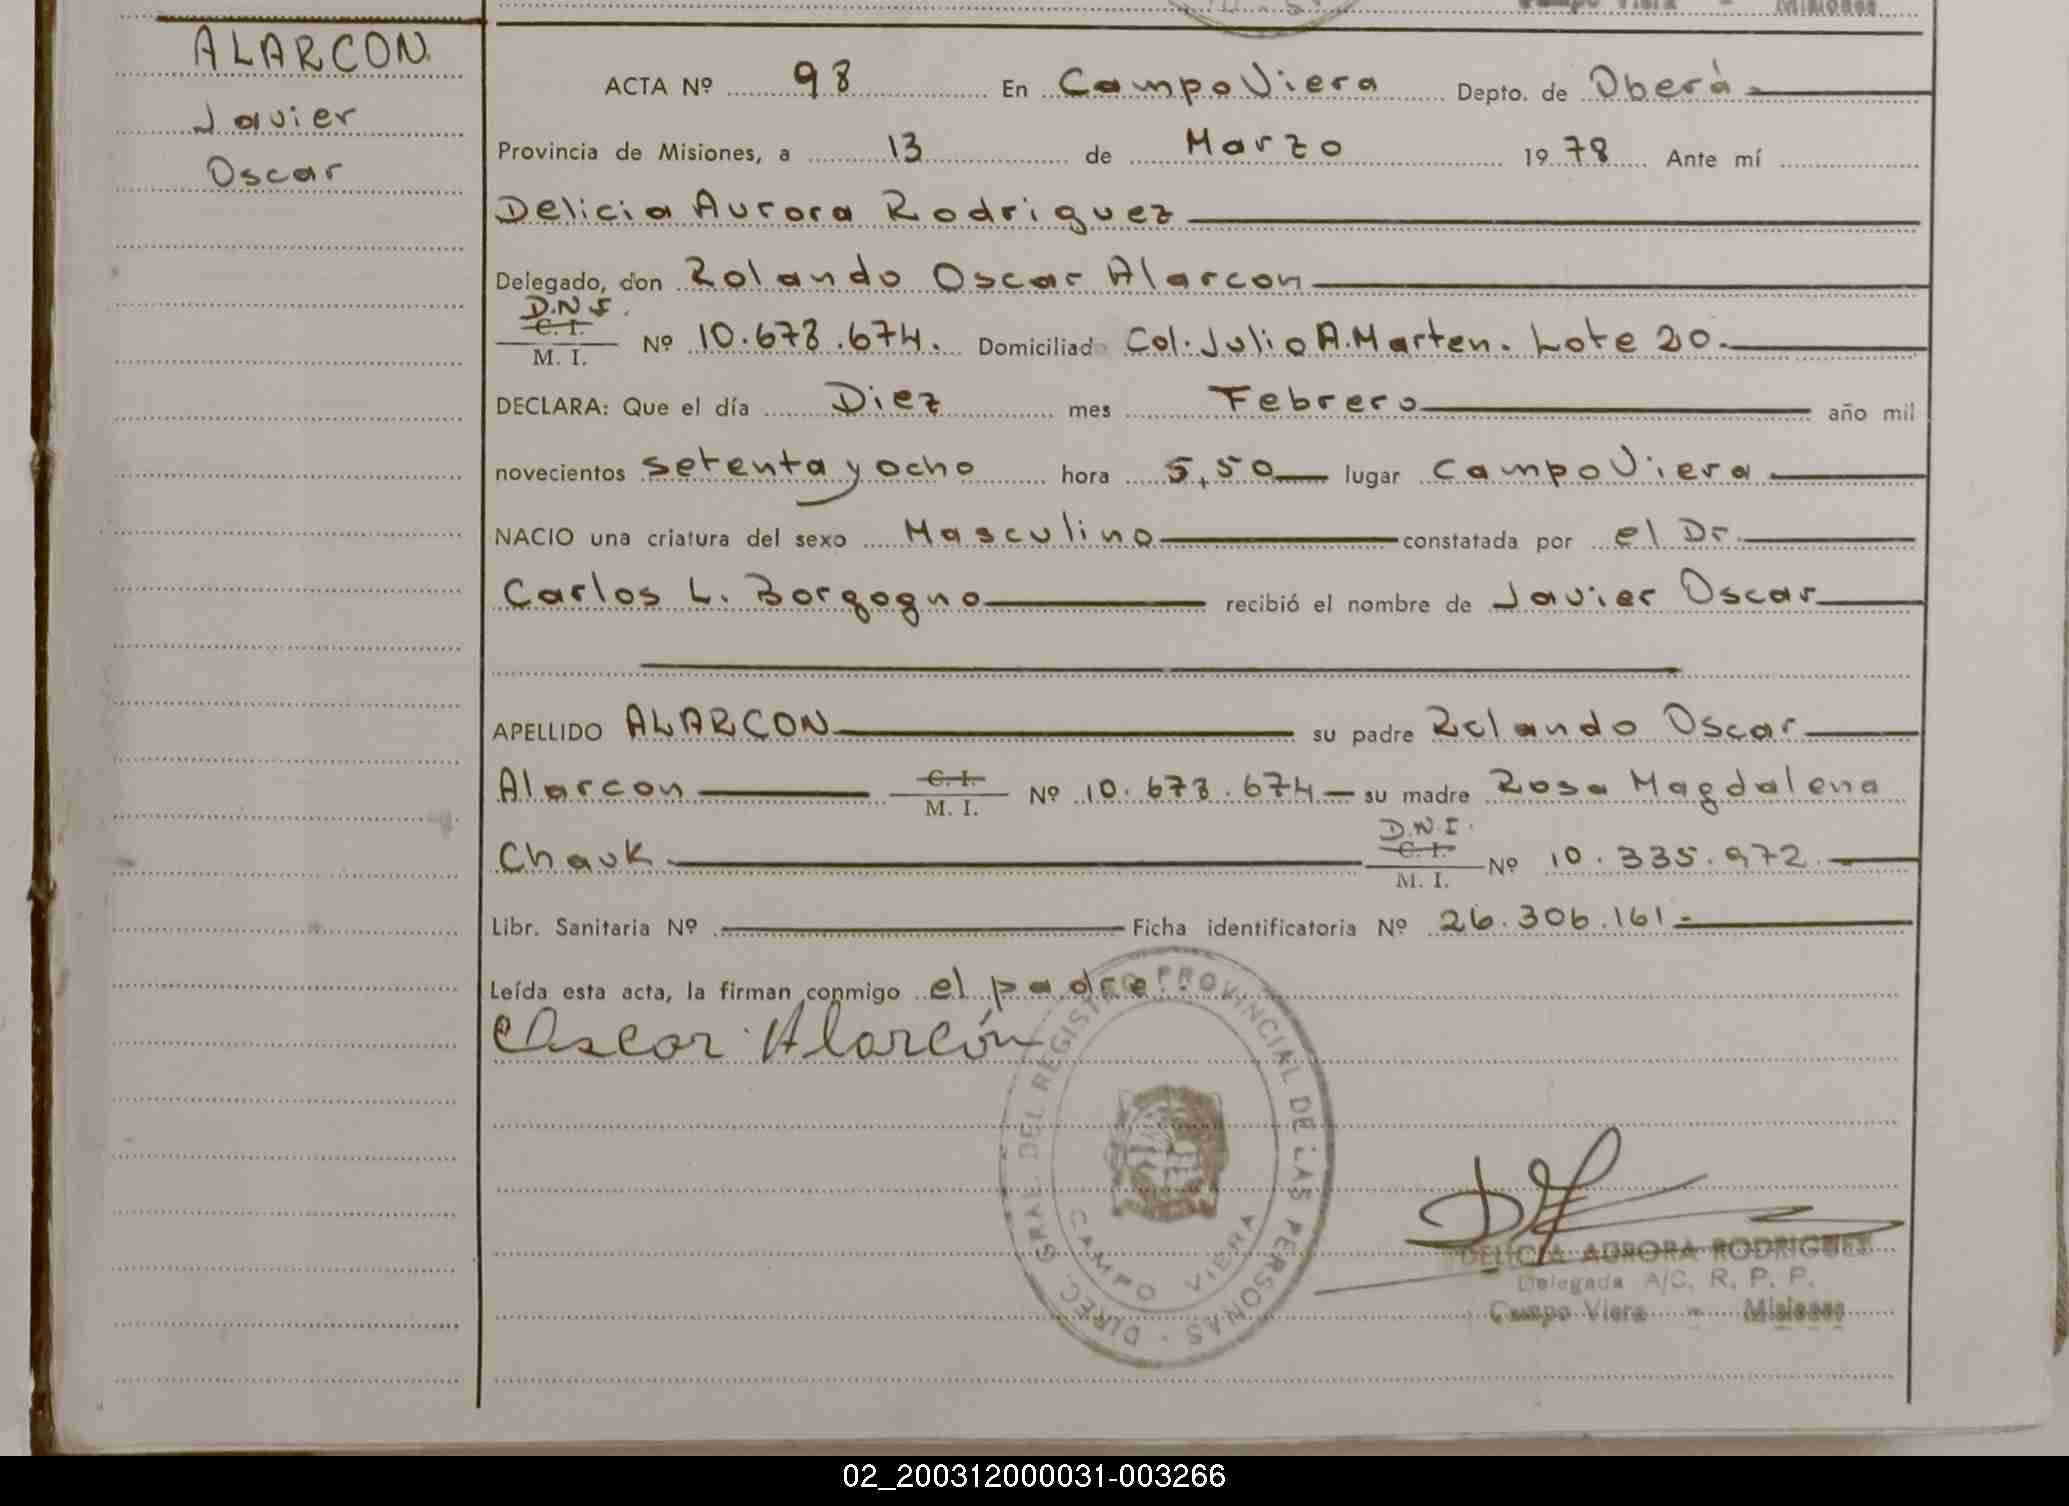 Campo Viera - Misiones
ALARCON
Javier
Oscar
ACTA Nº 98 En Campo Viera Depto. de Oberá
Provincia de Misiones, a 13 de Marzo 1978 Ante mí
Delicia Aurora Rodriguez
Delegado, don Rolando Oscar Alarcon
D.N.I.
C. I.
M. I. Nº 10.673.674. Domiciliado Col. Julio A. Marten. Lote 20.
DECLARA: Que el día Diez mes Febrero año mil
novecientos setenta y ocho hora 5,50 lugar Campo Viera
NACIO una criatura del sexo Masculino constatada por el Dr.
Carlos L. Borgogno recibió el nombre de Javier Oscar
APELLIDO ALARCON su padre Rolando Oscar
Alarcon C. I. M. I. Nº 10.673.674 su madre Rosa Magdalena
D.N.I.
Chauk C. I. M. I. Nº 10.335.972.
Libr. Sanitaria Nº Ficha identificatoria Nº 26.306.161.
Leída esta acta, la firman conmigo el padre.
Oscar Alarcón
DIREC. GRAL. DEL REGISTRO PROVINCIAL DE LAS PERSONAS
CAMPO VIERA
DELICIA AURORA RODRIGUES
Delegada A/C. R. P. P.
Campo Viera - Misiones
02_200312000031-003266